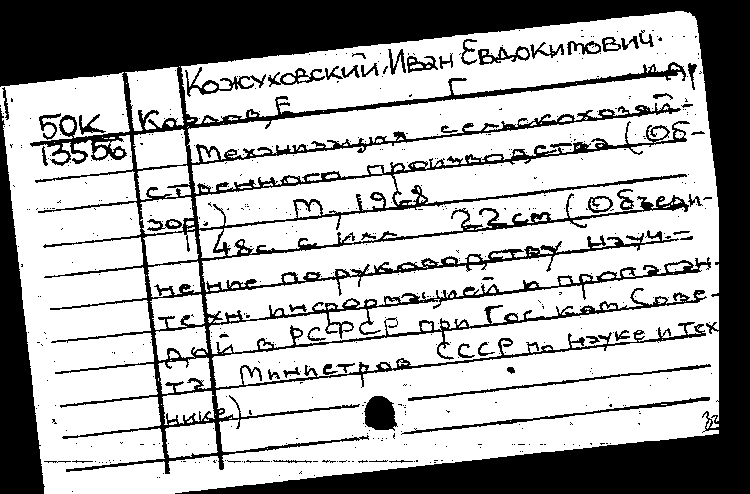 Кожуховский, Иван Евдокимович.
50К Козлов, Е Г и др
13556 Механизация сельскохозяй-
ственного производства (Об-
зор.) М., 1968
48с. с илл. 22см (Объеди-
нение по руководству науч.-
техн. информацией и пропаган-
дой в РСФСР при Гос. ком. Сове-
та Министров СССР по науке и тех
нике).